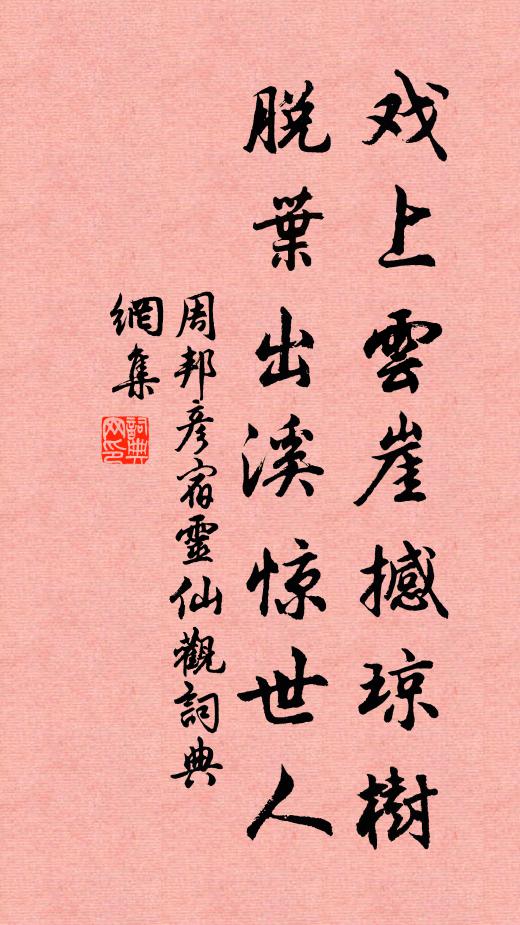 戏上雲崖撼琼樹
脱葉出溪惊世人
周邦彦宿靈仙觀詞典
網集
詞典
网印